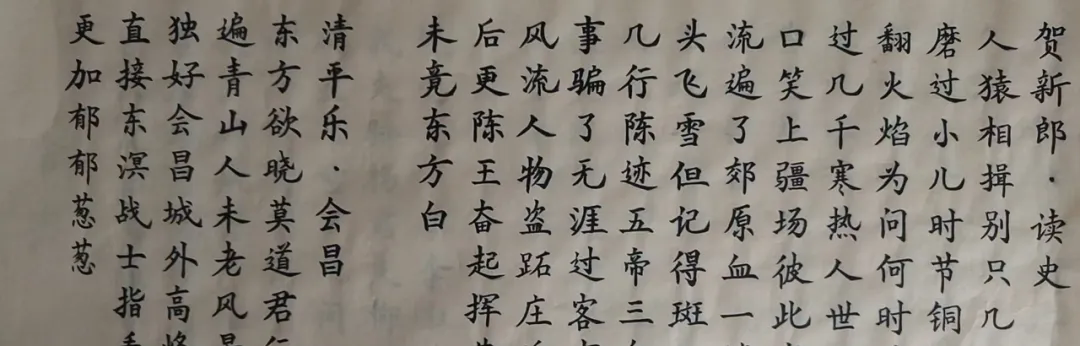 贺新郎·读史
人猿相揖别只几
磨过小儿时节铜
翻火焰为问何时
过几千寒热人世
口笑上疆场彼此
流遍了郊原血一
头飞雪但记得斑
几行陈迹五帝三
事骗了无涯过客
风流人物盗跖庄
后更陈王奋起挥
未竟东方白
清平乐·会昌
东方欲晓莫道君
遍青山人未老风
独好会昌城外高
直接东溟战士指
更加郁郁葱葱